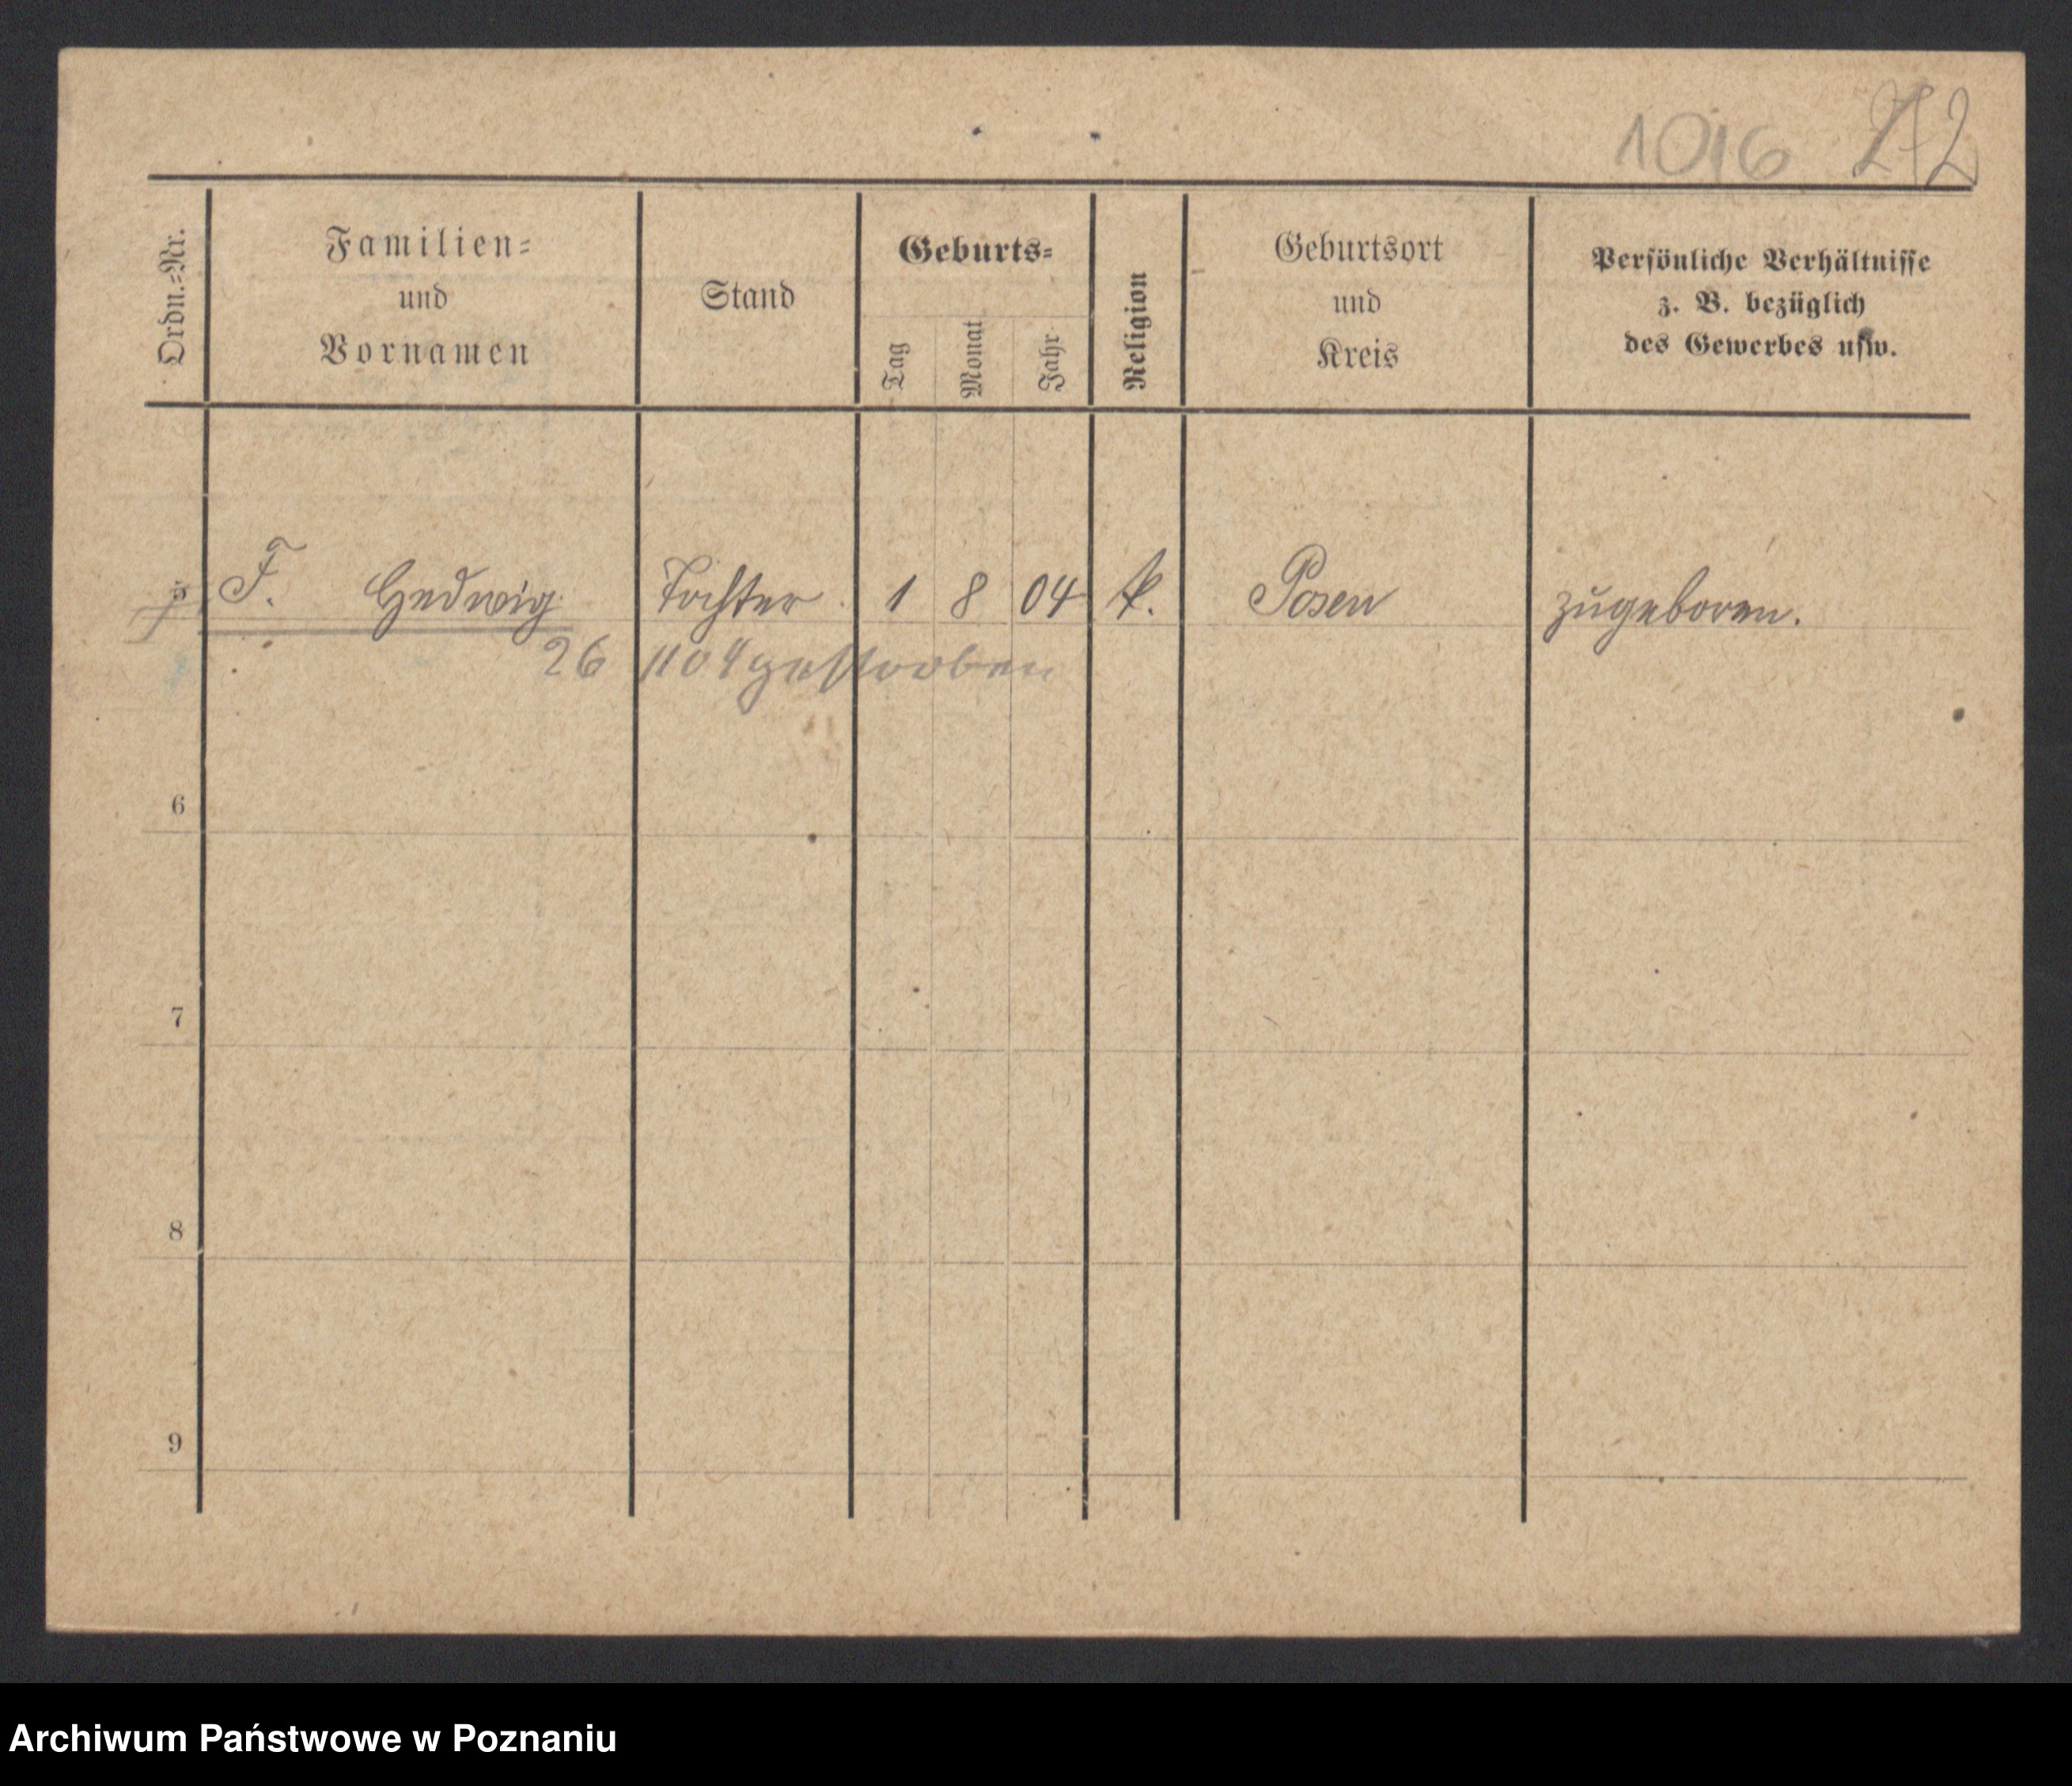 1016 272
Ordn.=Nr.
Familien=
und
Vornamen
Stand
Geburts=
Tag
Monat
Jahr
Religion
Geburtsort
und
Kreis
Persönliche Verhältnisse
z. B. bezüglich
des Gewerbes usw.
5 F. Hedwig Tochter 1 8 04 k. Posen zugeboren.
26 11 04 gestorben
6
7
8
9
Archiwum Państwowe w Poznaniu